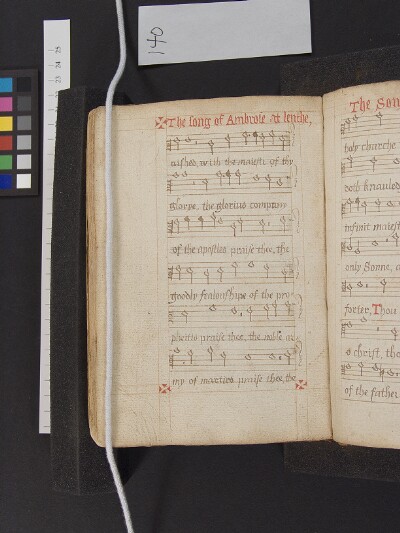 140
The song of Ambrose at lenthe,
nished, with the maiesti of thy
glorye, the glorius company
of the apostles praise thee, the
goodly fealowshipe of the pro
phettes praise thee, the noble ar
my of marters praise thee, the
The Son
holy churche
doth knauled
infinit maiest
only Sonne, a
forter, Thou
o christ, tho
of the father